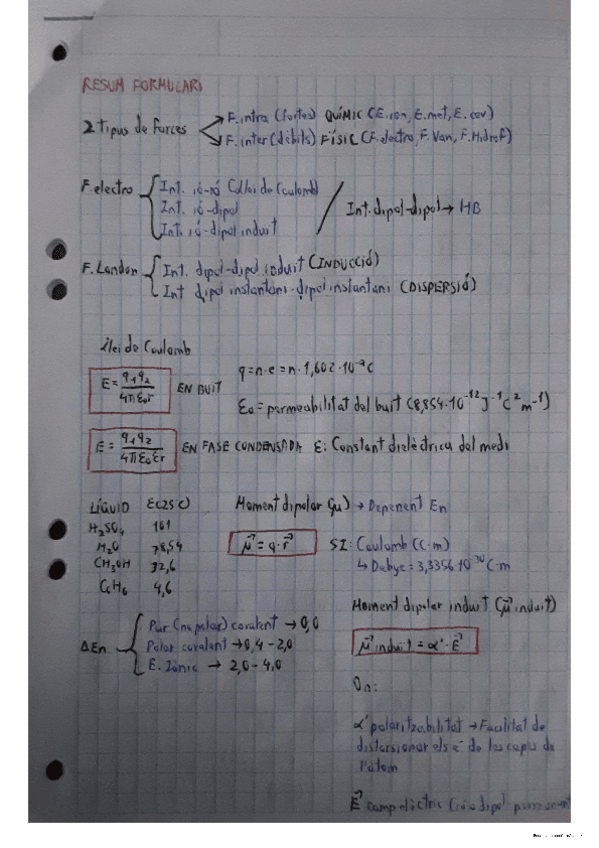 RESUM FORMULARI
2 tipus de forces
F. intra (fortes) QUÍMIC (E. ion, E. met, E. cov)
F. inter (dèbils) FÍSIC (F. electro, F. Van, F. Hidrof)
F. electro
Int. ió-ió (llei de Coulomb)
Int. ió-dipol
Int. ió-dipol induit
Int. dipol-dipol → HB
F. London
Int. dipol-dipol induit (INDUCCIÓ)
Int dipol instantani-dipol instantani (DISPERSIÓ)
Llei de Coulomb
E = q1q2 / 4πε0r EN BUIT
q = n·e = n·1,602·10⁻¹⁹C
ε0 = permeabilitat del buit (8,854·10⁻¹² J⁻¹C²m⁻¹)
E = q1q2 / 4πε0εr EN FASE CONDENSADA ε: Constant dielèctrica del medi
LÍQUID ε(25ºC)
H2SO4 101
H2O 78,54
CH3OH 32,6
C6H6 4,6
Moment dipolar (μ) → Depenent En
μ⃗ = q·r⃗
SI: Coulomb (C·m)
↳ Debye = 3,3356·10⁻³⁰ C·m
ΔEn
Pur (no polar) covalent → 0,0
Polar covalent → 0,4 - 2,0
E. Iònic → 2,0 - 4,0
Moment dipolar induit (μ⃗ induit)
μ⃗ induit = α'·E⃗
On:
α' polaritzabilitat → Facilitat de
distorsionar els e⁻ de les capes de
l'àtom
E⃗ camp elèctric (ió o dipol permanent